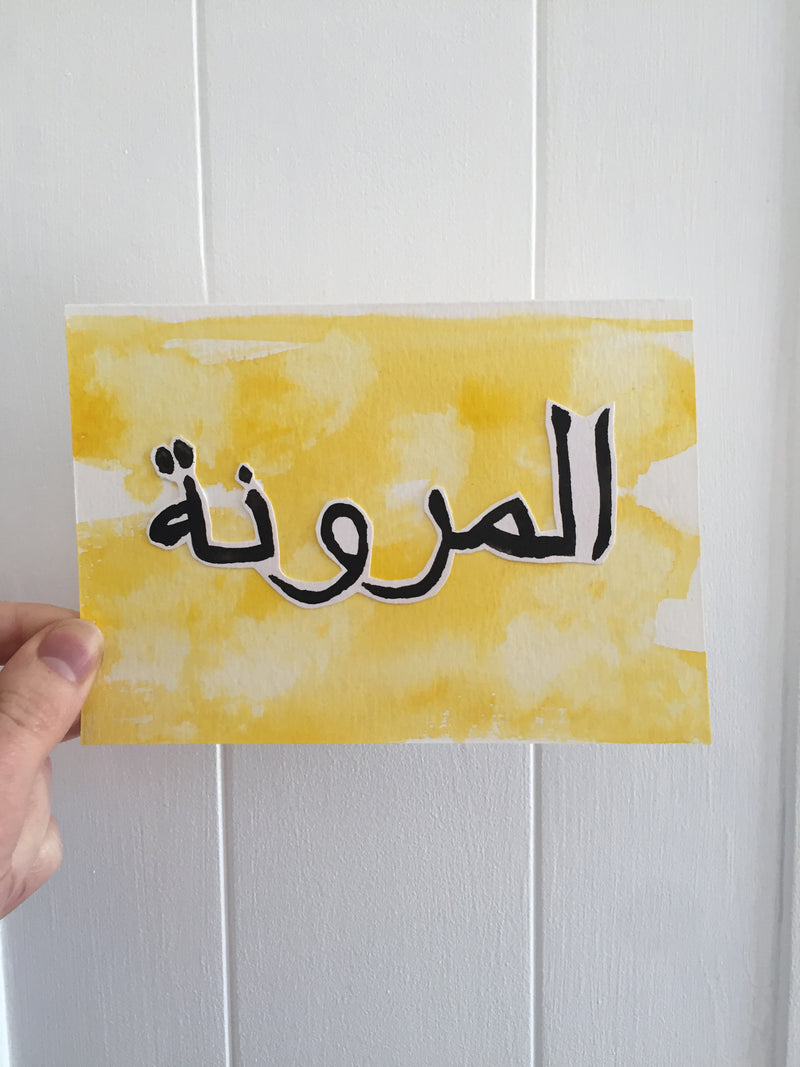 المرونة